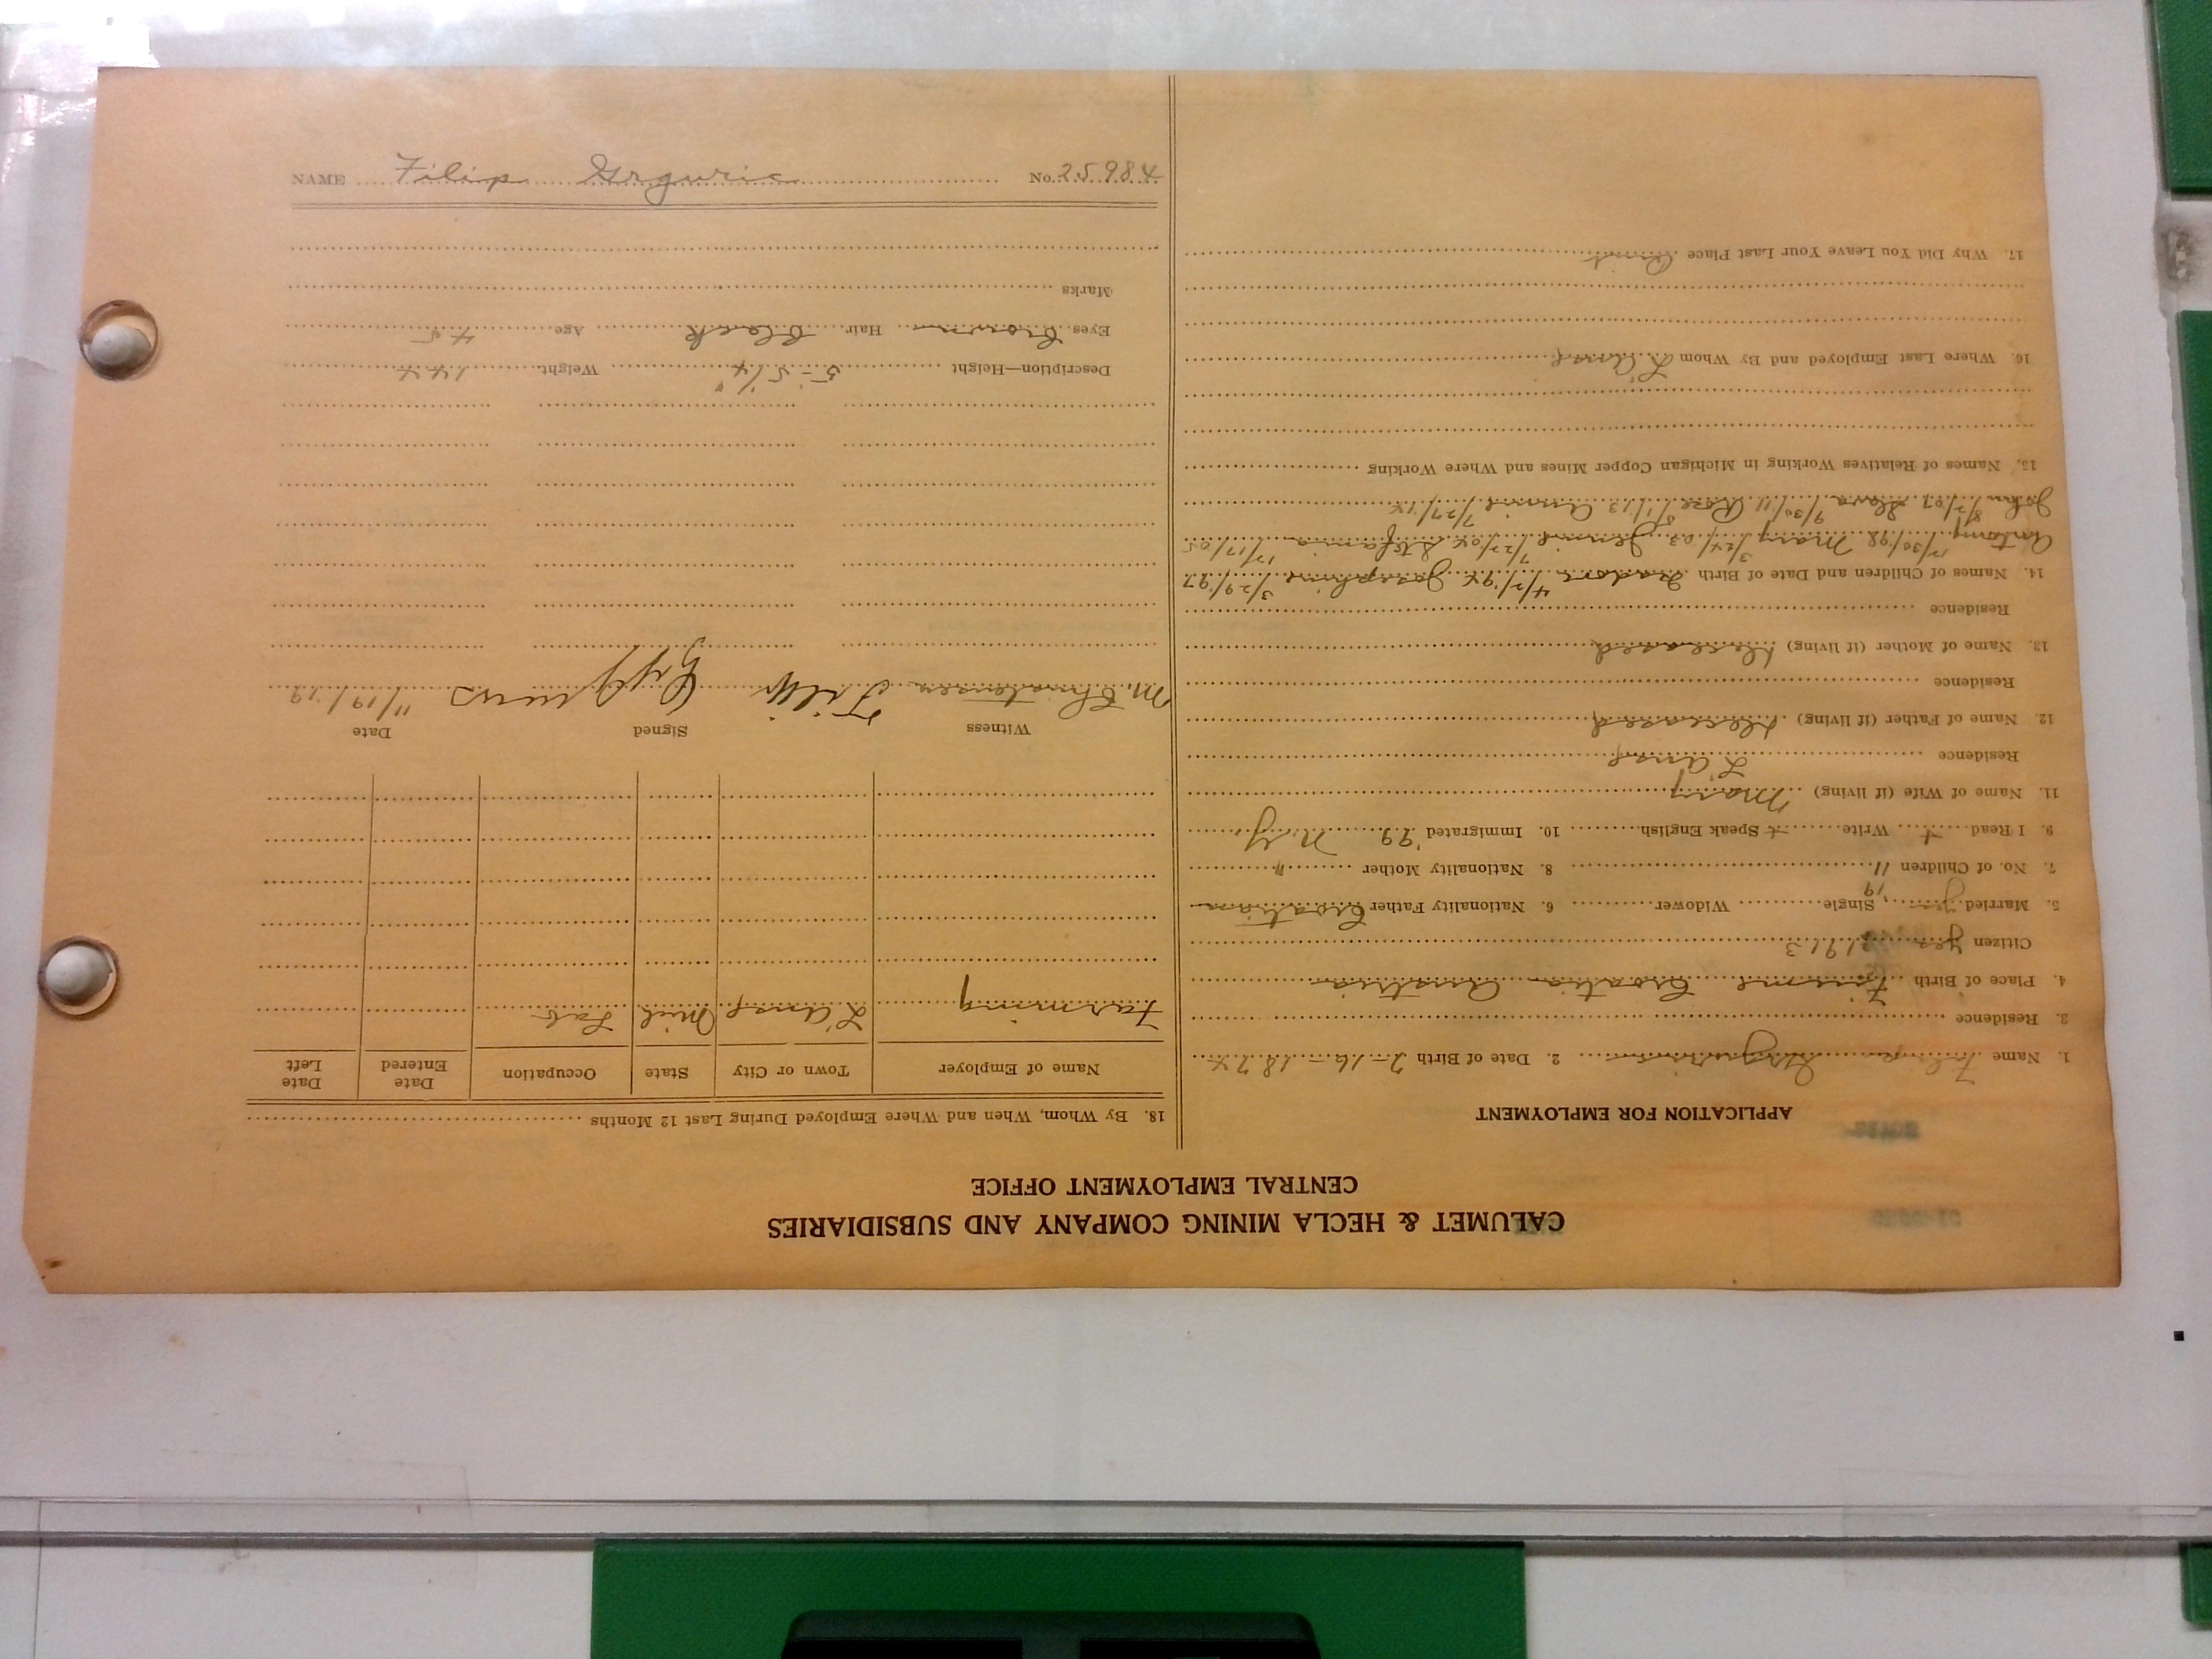 CALUMET & HECLA MINING COMPANY AND SUBSIDIARIES
CENTRAL EMPLOYMENT OFFICE
APPLICATION FOR EMPLOYMENT
1. Name Filip Grguric 2. Date of Birth 2-16-1874
3. Residence
4. Place of Birth Fiume Croatia Austria
Citizen yes 1913
5. Married yes, 19 Single Widower 6. Nationality Father Croatian
7. No. of Children 11 8. Nationality Mother "
9. I Read + Write + Speak English 10. Immigrated '99 N.Y.
11. Name of Wife (if living) Mary
Residence L'Anse
12. Name of Father (if living) deceased
Residence
13. Name of Mother (if living) deceased
Residence
14. Names of Children and Date of Birth 4/2/94 Josephine 3/29/97
Antony 12/30/98 Mary 3/24/03 Jennie 7/22/04 Stefania 12/17/05
John 8/2/07 9/30/11 Rose 8/1/13 Annie 7/27/14
15. Names of Relatives Working in Michigan Copper Mines and Where Working
16. Where Last Employed and By Whom L'Anse
17. Why Did You Leave Your Last Place Quit
18. By Whom, When and Where Employed During Last 12 Months
Name of Employer Town or City State Occupation Date Entered Date Left
Farming L'Anse Mich Lab
Witness Signed Date
M. Christensen Filip 11/19/19
Description—Height 5-5 1/4" Weight 144
Eyes brown Hair black Age 45
Marks
NAME Filip Grguric No. 25984